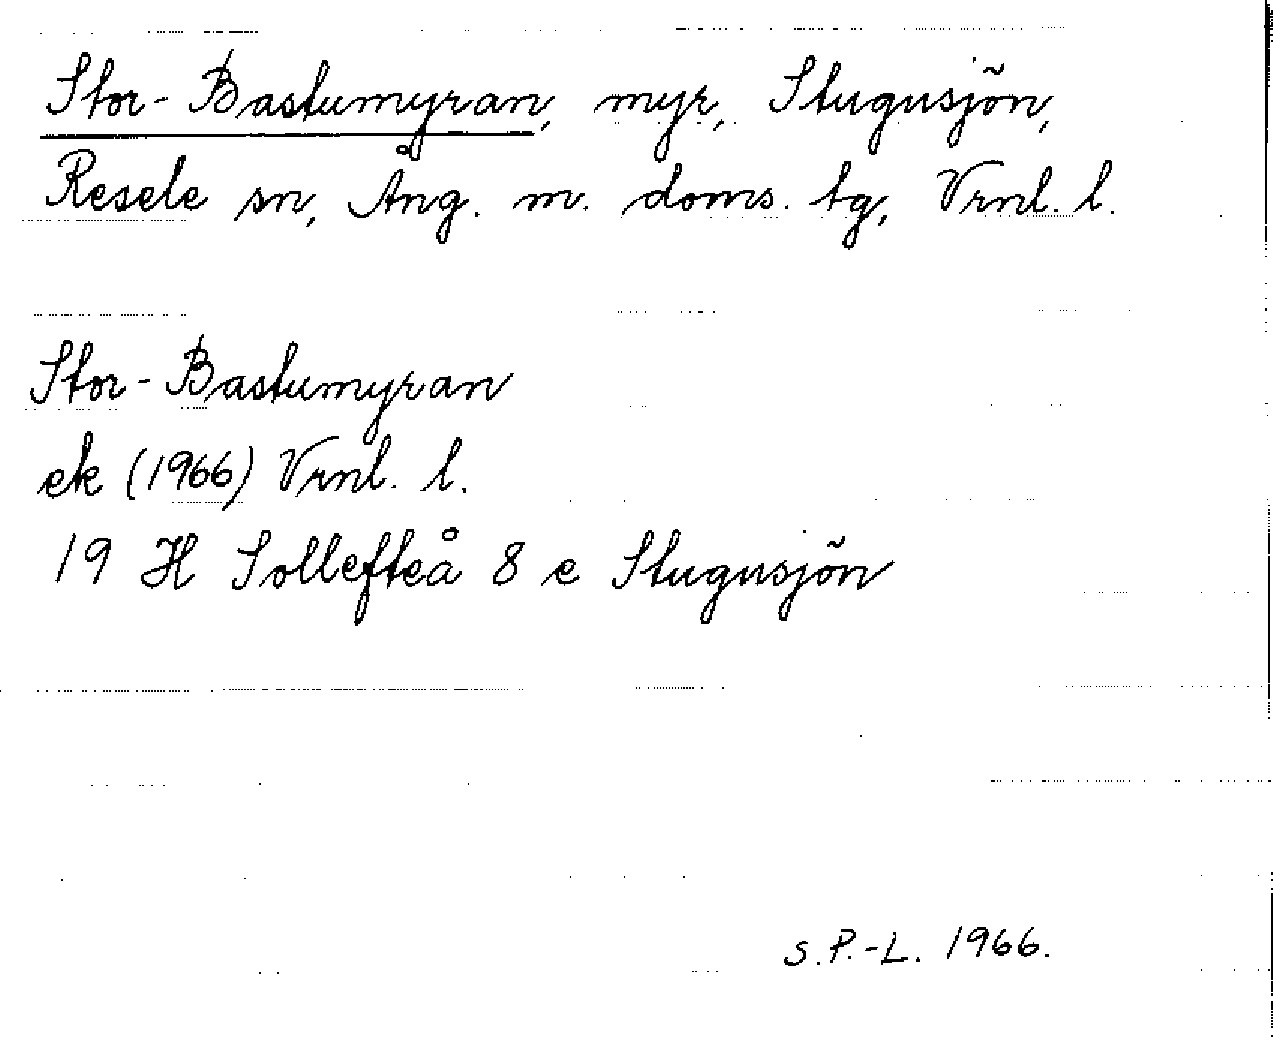 Stor-Bastumyran, myr, Stugusjön,
Resele sn, Ång. m. doms. tg, Vrnl. l.
Stor-Bastumyran
ek (1966) Vrnl. l.
19 H Sollefteå 8 e Stugusjön
S.P.-L. 1966.